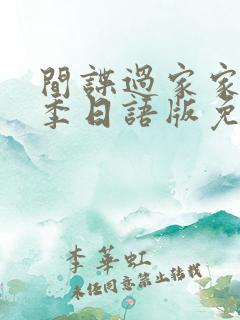 間諜過家家
季日語版免
李華虹
未经同意禁止转载